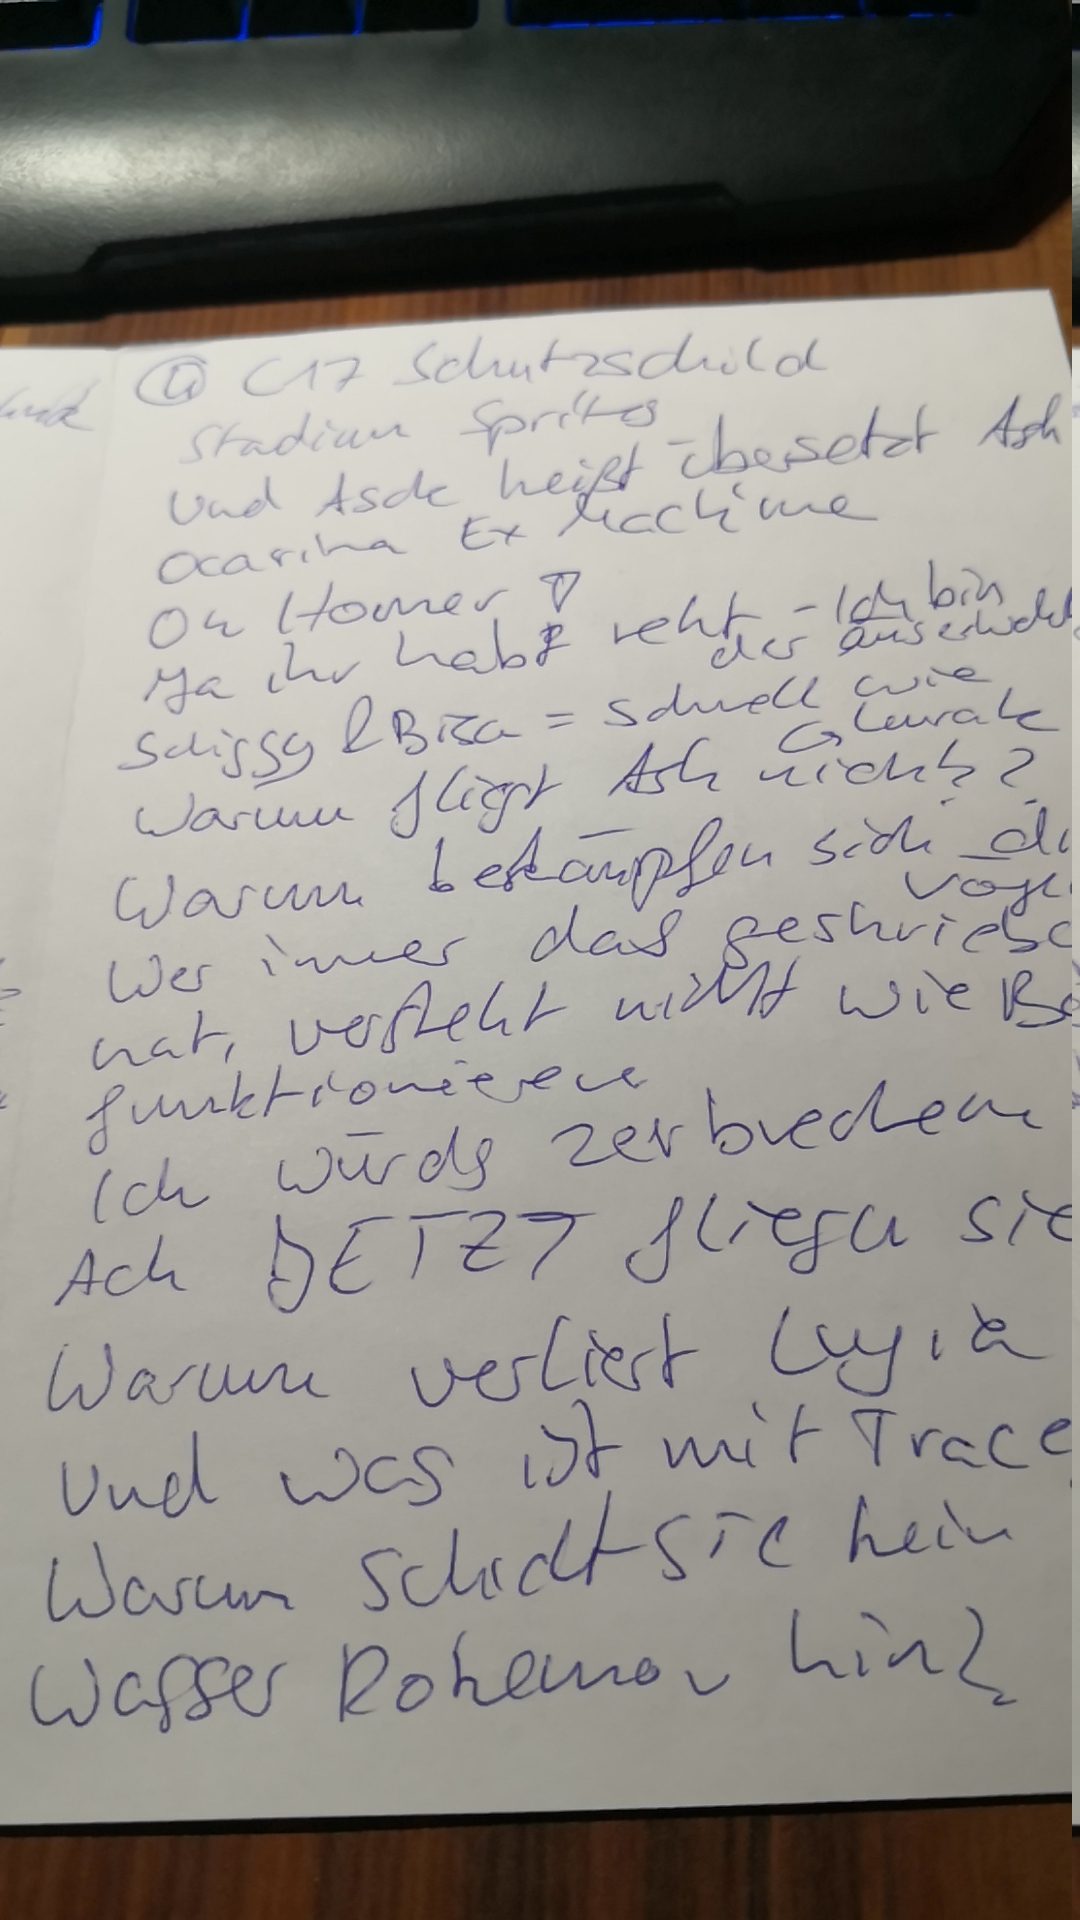 ④ C17 Schutzschild
Stadium Sprites
Und Asche heißt übersetzt Ash
Ocarina Ex Machine
Oh Homer
Ja ihr habt reht - Ich bin
der auserwähl
Schiggy & Bisa = schnell wie
Glurak
Warum fliegt Ash nicht?
Warum bekämpfen sich di
Vögel
Wer immer das geshriebe
hat, versteht nicht wie
funktionieren
Ich würde zerbrechen
Ach JETZT fliegen sie
Warum verliert Lugia
Und was ist mit Trace
Warum schickt sie kein
Wasser Pokemon hin?